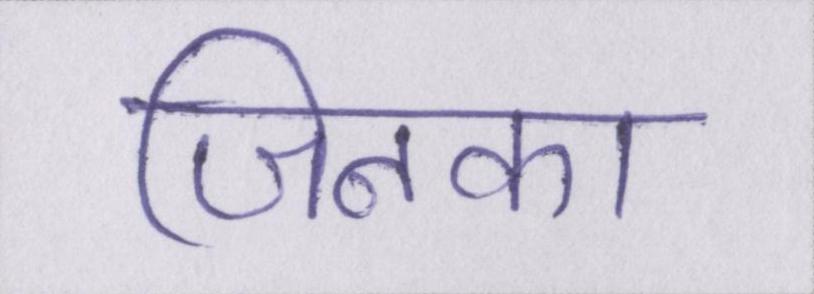 जिनका